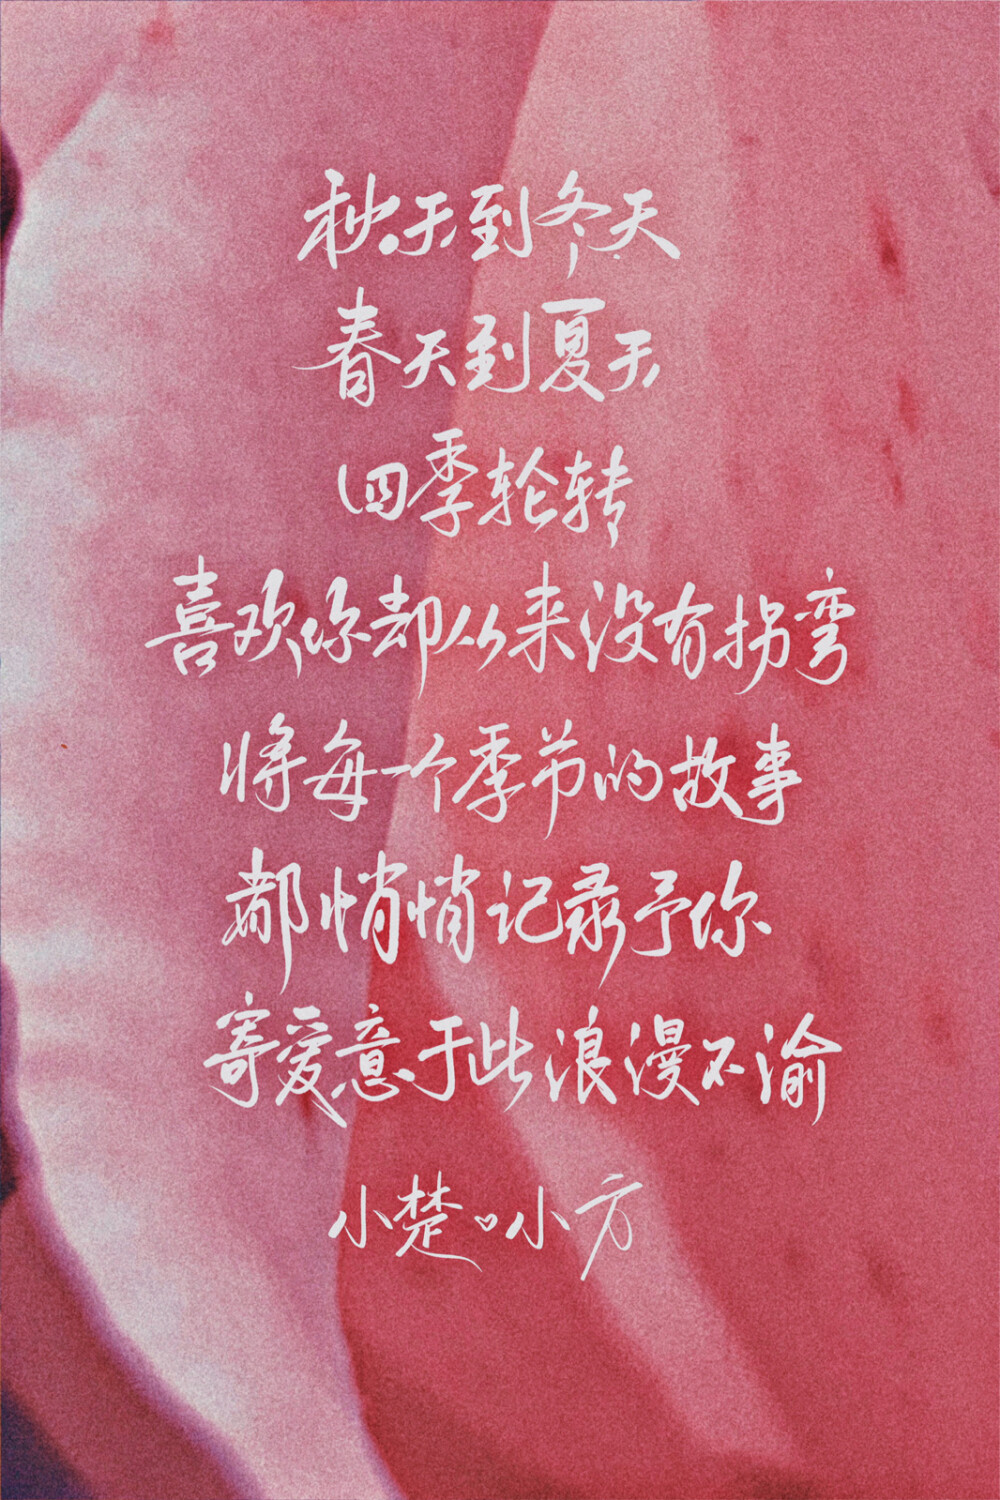 秋天到冬天
春天到夏天
四季轮转
喜欢你却从来没有拐弯
将每一个季节的故事
都悄悄记录予你
寄爱意于此浪漫不渝
小楚♥小方